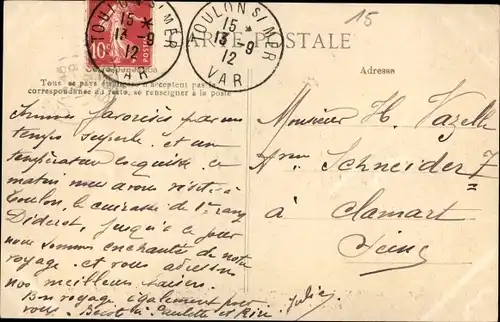 15
TOULON S/MER
15 *
13 - 9
12
VAR
10c
POSTES
TOULON S/MER
15 *
13 - 9
12
VAR
CARTE POSTALE
Correspondance
Tous les pays étrangers n'acceptent pas la
correspondance au recto, se renseigner à la poste
Adresse
Sommes favorisés par un
temps superbe et un
température exquise. Ce
matin nous avons visité à
Toulon, le cuirassé de 1er rang
Diderot, jusqu'à ce jour
nous sommes enchantés de notre
voyage et vous adressons
nos meilleurs baisers.
Bon voyage également pour
vous. Bécot à Paulette et Riri
Julie
Monsieur H. Vazelle
Schneider 7
à Clamart
Seine